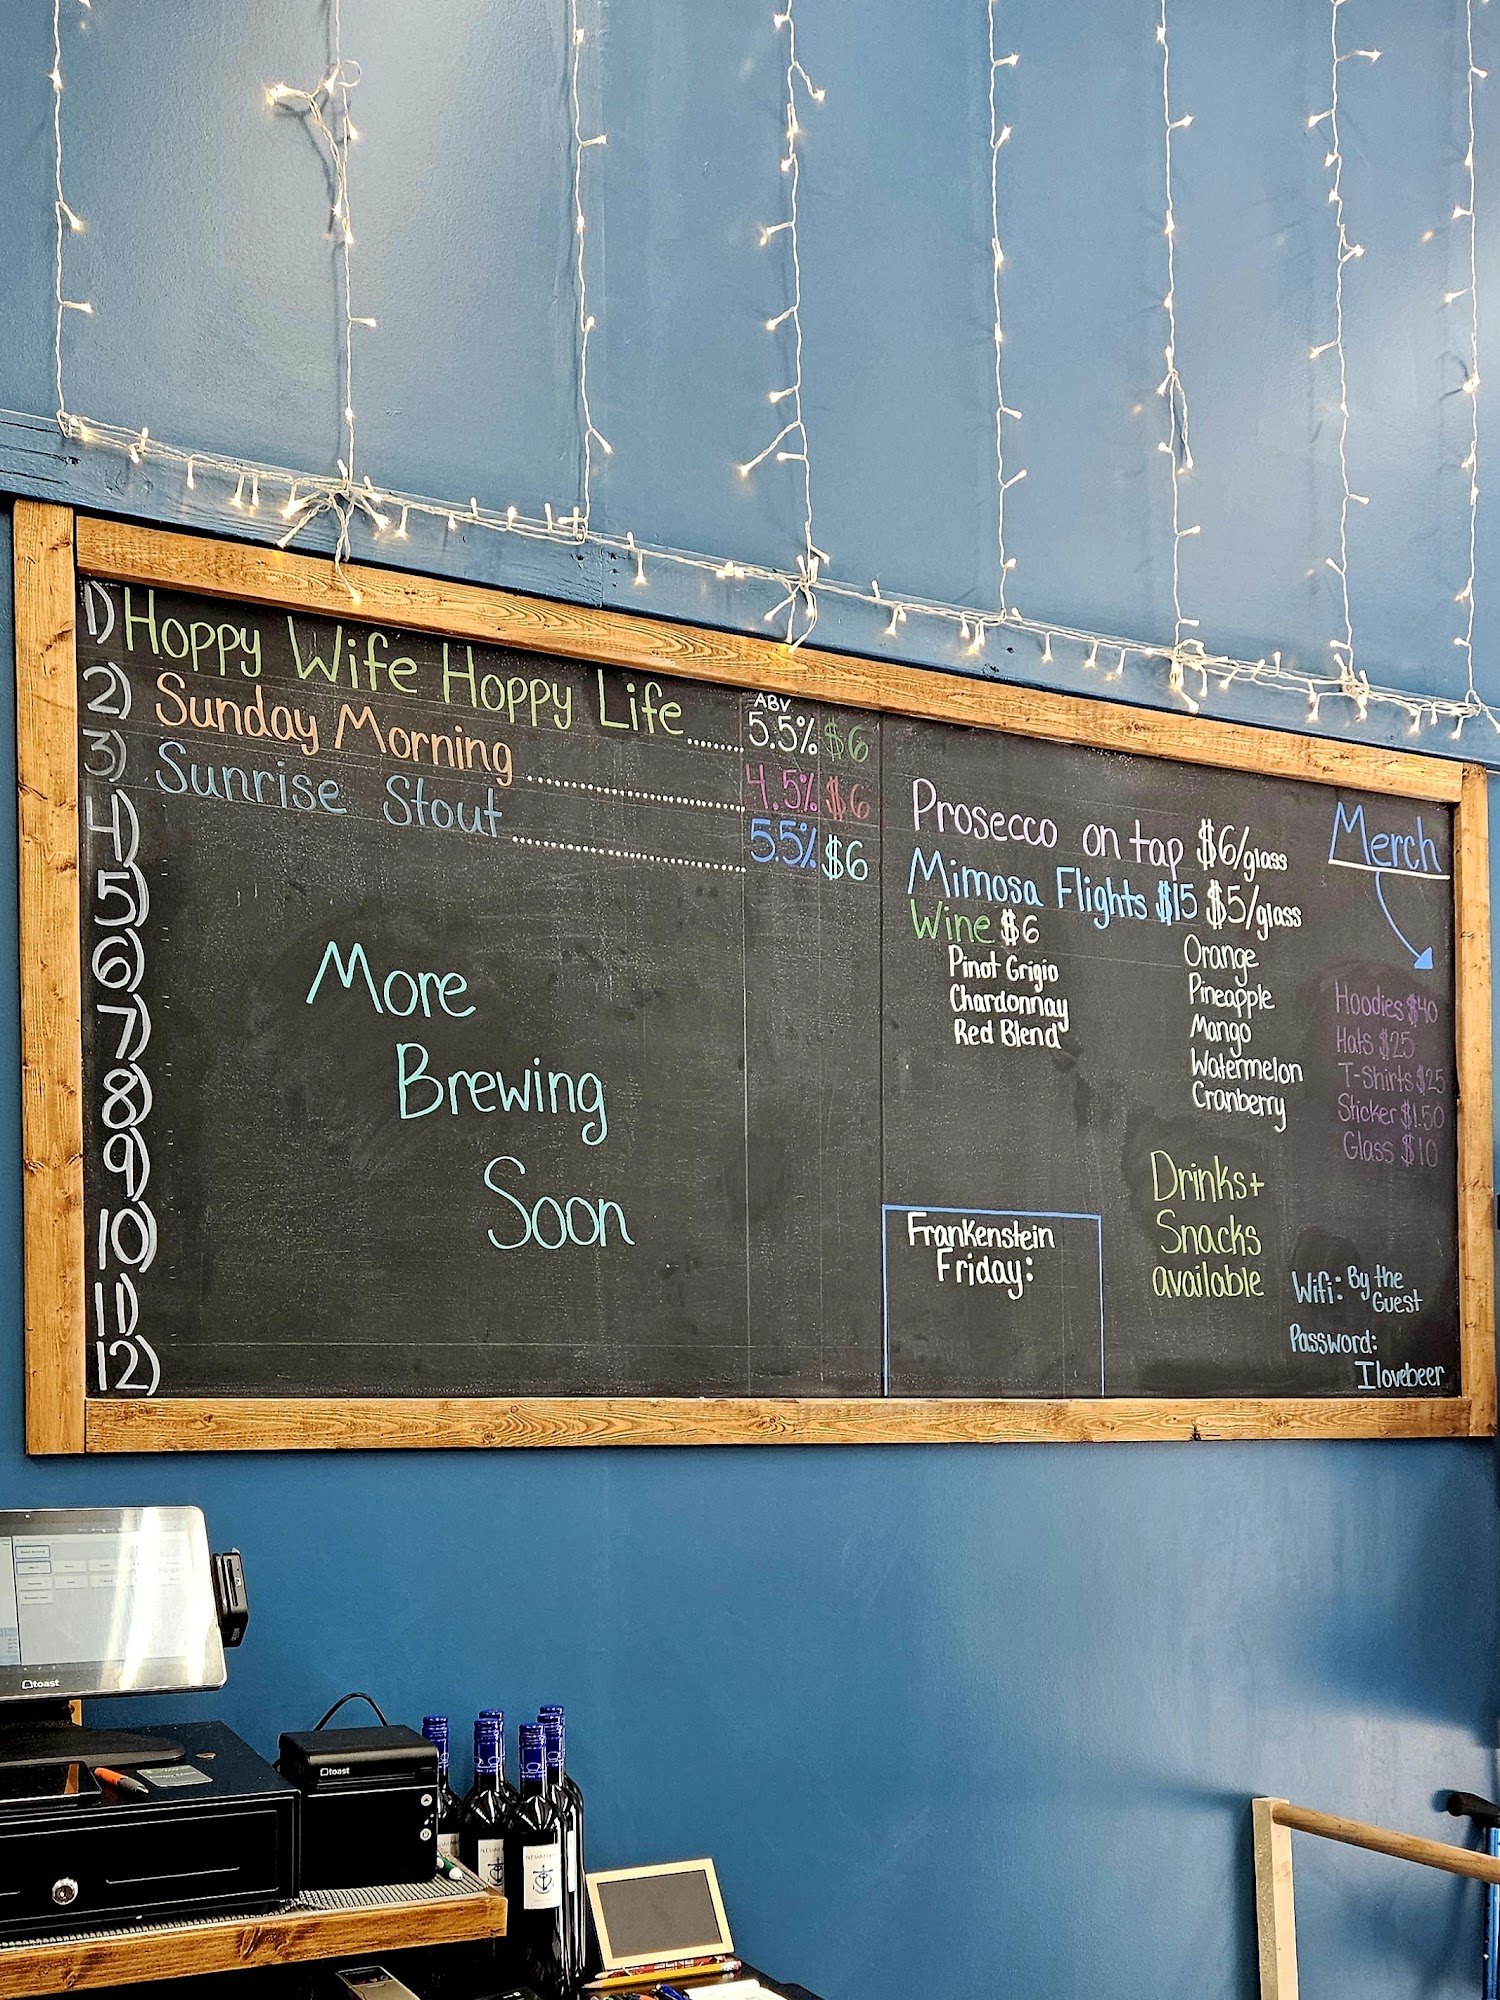 1) Hoppy Wife Hoppy Life........ 5.5% $6
ABV
2) Sunday Morning........................ 4.5% $6
3) Sunrise Stout........................ 5.5% $6
4)
5)
6)
7)
8)
9)
10)
11)
12)
More
Brewing
Soon
Prosecco on tap $6/glass
Mimosa Flights $15 $5/glass
Orange
Pineapple
Mango
Watermelon
Cranberry
Wine $6
Pinot Grigio
Chardonnay
Red Blend
Frankenstein
Friday:
Drinks+
Snacks
available
Merch
Hoodies $40
Hats $25
T-Shirts $25
Sticker $1.50
Glass $10
Wifi: By the
Guest
Password:
Ilovebeer
toast
toast